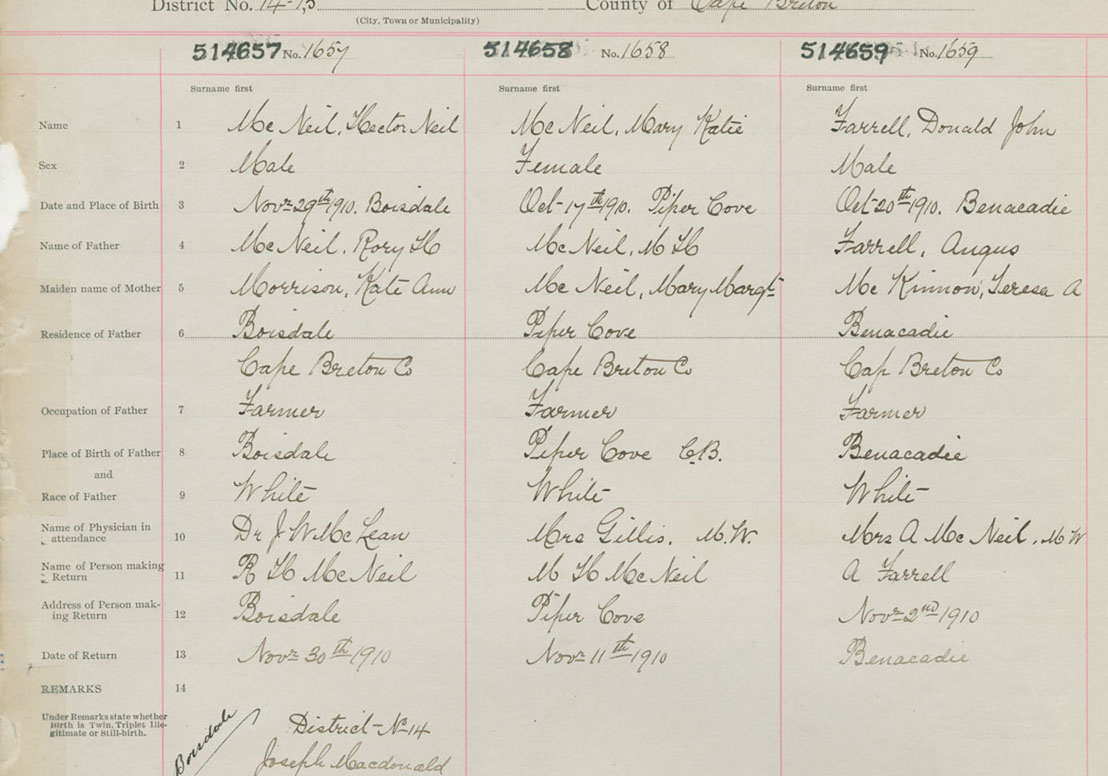 District No. 14-13 County of Cape Breton
(City, Town or Municipality)
514657 No. 1657 514658 No. 1658 514659 No. 1659
Surname first Surname first Surname first
Name 1 McNeil, Hector Neil McNeil, Mary Katie Farrell, Donald John
Sex 2 Male Female Male
Date and Place of Birth 3 Novr 29th 1910. Boisdale Oct 17th 1910. Piper Cove Oct 20th 1910. Benacadie
Name of Father 4 McNeil, Rory H McNeil, M H Farrell, Angus
Maiden name of Mother 5 Morrison, Kate Ann McNeil, Mary Margt McKinnon, Teresa A
Residence of Father 6 Boisdale Piper Cove Benacadie
Cape Breton Co Cape Breton Co Cap Breton Co
Occupation of Father 7 Farmer Farmer Farmer
Place of Birth of Father 8 Boisdale Piper Cove C.B. Benacadie
and
Race of Father 9 White White White
Name of Physician in
attendance 10 Dr J W McLean Mrs Gillis, M.W. Mrs A McNeil, M W
Name of Person making
Return 11 R H McNeil M H McNeil A Farrell
Address of Person mak-
ing Return 12 Boisdale Piper Cove Novr 2nd 1910
Date of Return 13 Novr 30th 1910 Novr 11th 1910 Benacadie
REMARKS 14
Under Remarks state whether
Birth is Twin, Triplet Ille-
gitimate or Still-birth.
Boisdale
District No 14
Joseph Macdonald